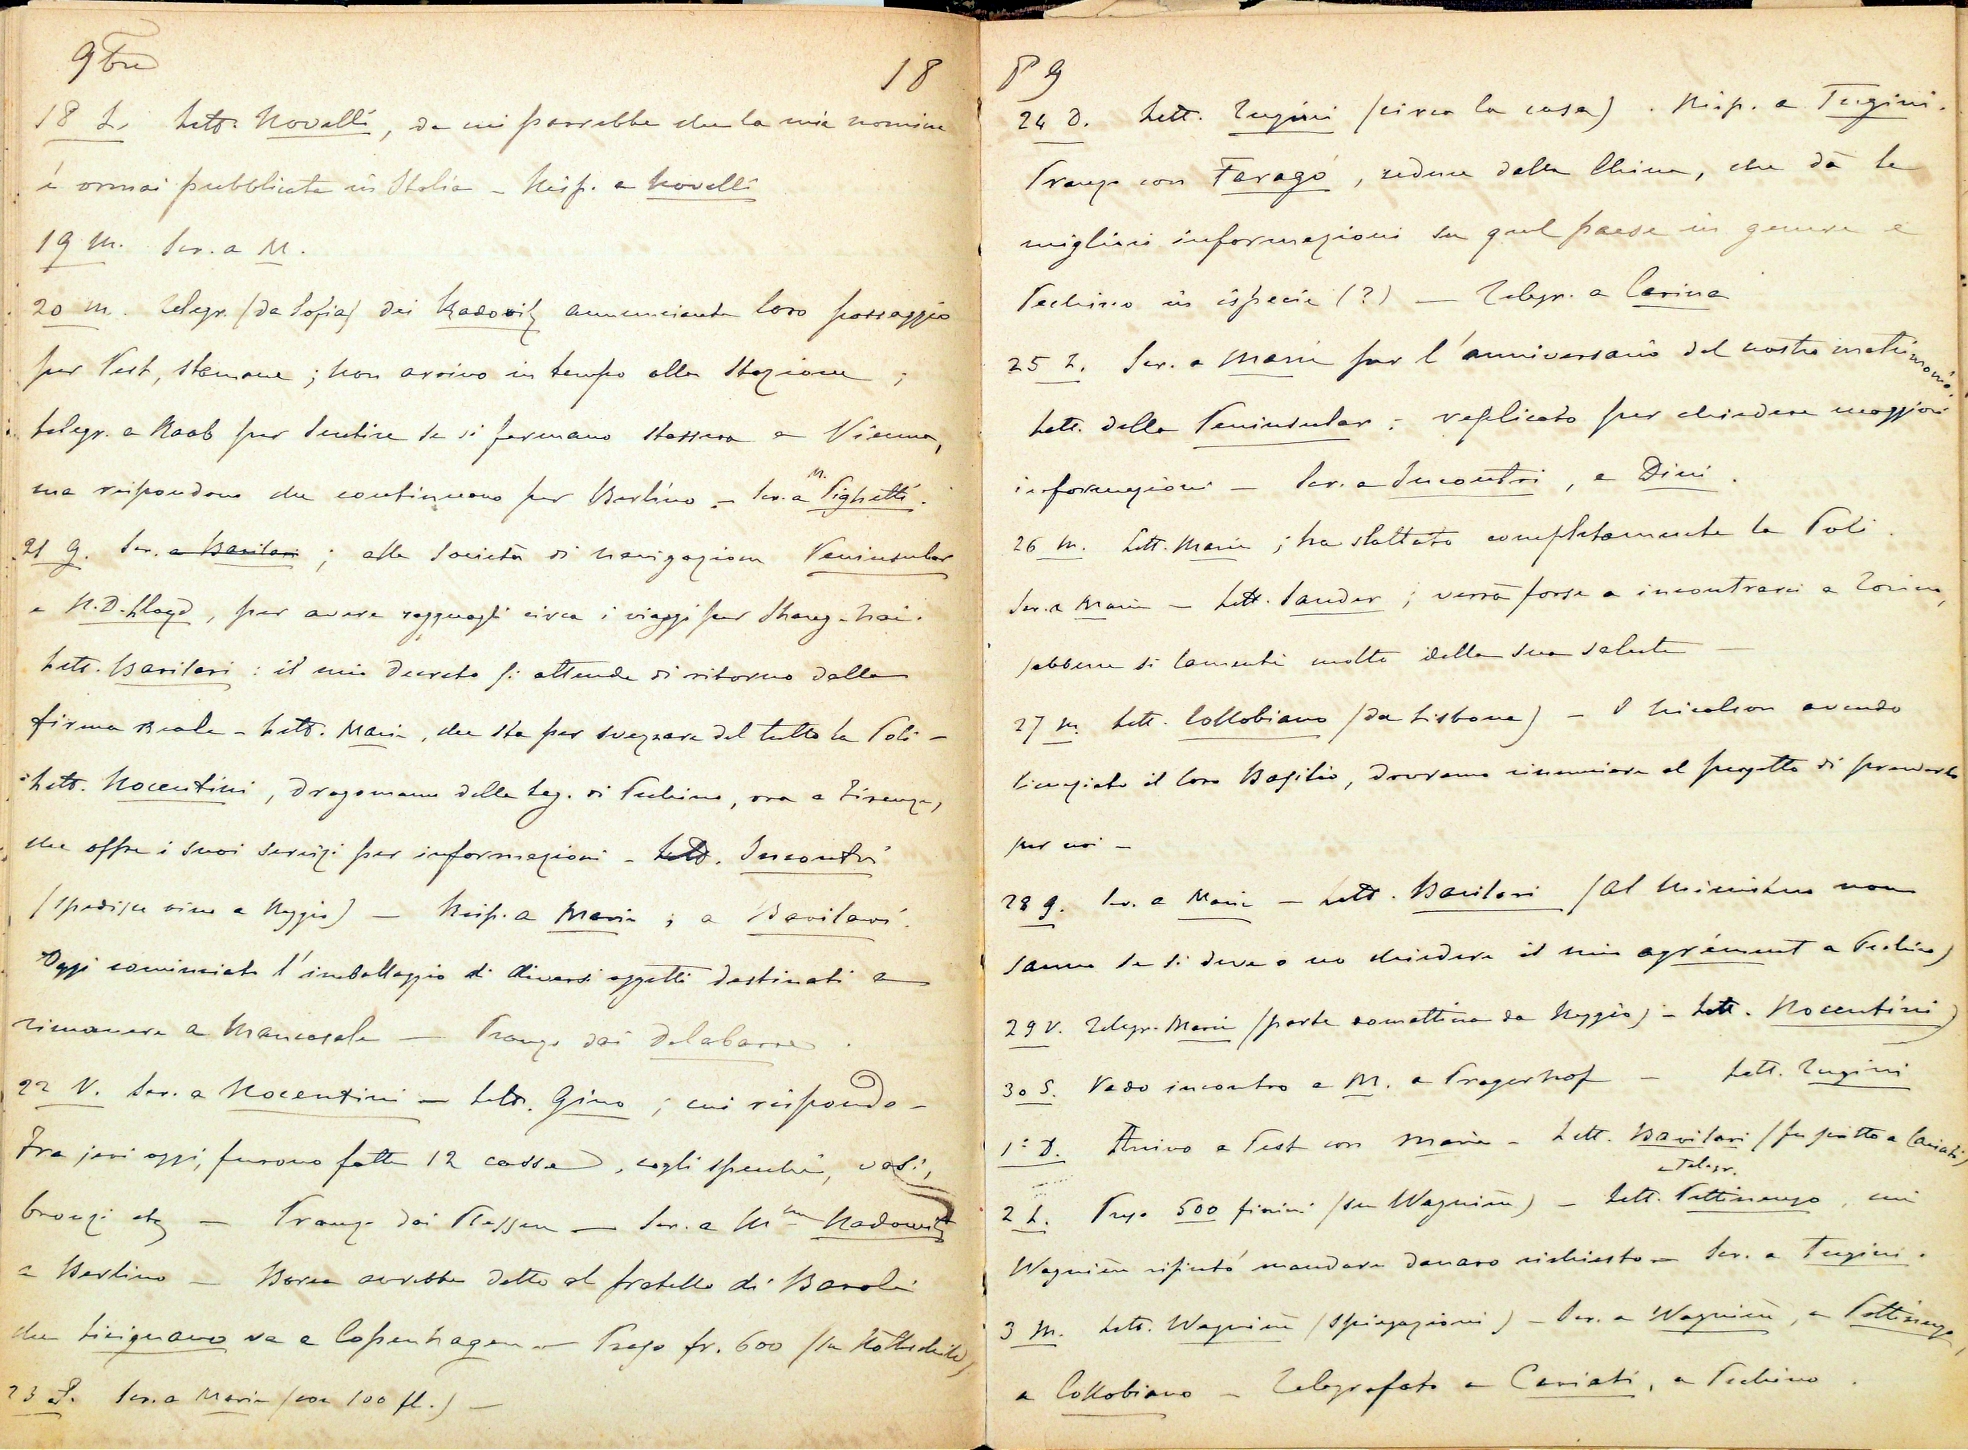 9bre 18
18 L. Lett. Novelli, da cui parrebbe che la mia nomina
è ormai pubblicata in Italia – Risp. a Novelli
19 M. Scr. a M.
20 M. Telegr. (da Sofia) dei Radowitz annunciante loro passaggio
per Pest, stamane ; non arrivo in tempo alla Stazione ;
telegr. a Raab per sentire se si fermano stassera a Vienna,
ma rispondono che continuano per Berlino. – Scr. a M. Pighetti.
21 G. Scr. a Barilari ; alla Società di navigazione Peninsular
e N.D. Lloyd, per avere ragguagli circa i viaggi per Shang-hai.
Lett. Barilari : il mio Decreto si attende di ritorno dalla
firma Reale – Lett. Maria, che sta per svezzare del tutto la Poli –
Lett. Nocentini, Dragomanno della Leg. di Pechino, ora a Firenze,
che offre i suoi servizi per informazioni – Lett. Incontri
(spedisce vino a Reggio) – Risp. a Maria ; a Barilari.
Oggi cominciato l'imballaggio di diversi oggetti destinati a
rimanere a Mancasale – Pranzo dai Delabarre.
22 V. Scr. a Nocentini – Lett. Gino ; cui rispondo –
Fra jeri oggi, furono fatte 12 casse, cogli specchi, vasi,
bronzi etc – Pranzo dai Plessen – Scr. a Mme Radowitz
a Berlino – Borea avrebbe detto al fratello di Baroli
che Licignano va a Copenhagen – Preso fr. 600 (su Rothschild)
23 S. Scr. a Maria (con 100 fl.) –
89
24 D. Lett. Tugini (circa la casa). Risp. a Tugini.
Pranzo con Faragó, reduce dalla China, che dà le
migliori informazioni su quel paese in genere e
Pechino in ispecie (?) – Telegr. a Carina
25 L. Scr. a Maria per l'anniversario del nostro matrimonio.
Lett. della Peninsular ; replicato per chiedere maggiori
informazioni – Scr. a Incontri, a Dini.
26 M. Lett. Maria ; ha slattato completamente la Poli.
Scr. a Maria – Lett. Sander ; verrà forse a incontrarci a Torino,
sebbene si lamenti molto della sua salute –
27 M. Lett. Collobiano (da Lisbona) – I Nicolson avendo
licenziato il loro Basilio, dovremo rinunciare al progetto di prenderlo
per noi –
28 G. Scr. a Maria – Lett. Barilari (al Ministero non
sanno se si deve o no chiedere il mio agrément a Pechino)
29 V. Telegr. Maria (parte domattina da Reggio) – Lett. Nocentini)
30 S. Vado incontro a M. a Pragerhof – Lett. Tugini
1° D. Arrivo a Pest con Maria – Lett. Barilari (fu scritto a Cariati)
e telegr.
2 L. Preso 500 fiorini (su Wagnière) – Lett. Pettinengo, cui
Wagnière rifiutò mandare danaro richiesto – Scr. a Tugini.
3 M. Lett. Wagnière (spiegazioni) – Scr. a Wagnière, a Pettinengo,
a Collobiano – Telegrafato a Cariati, a Pechino.